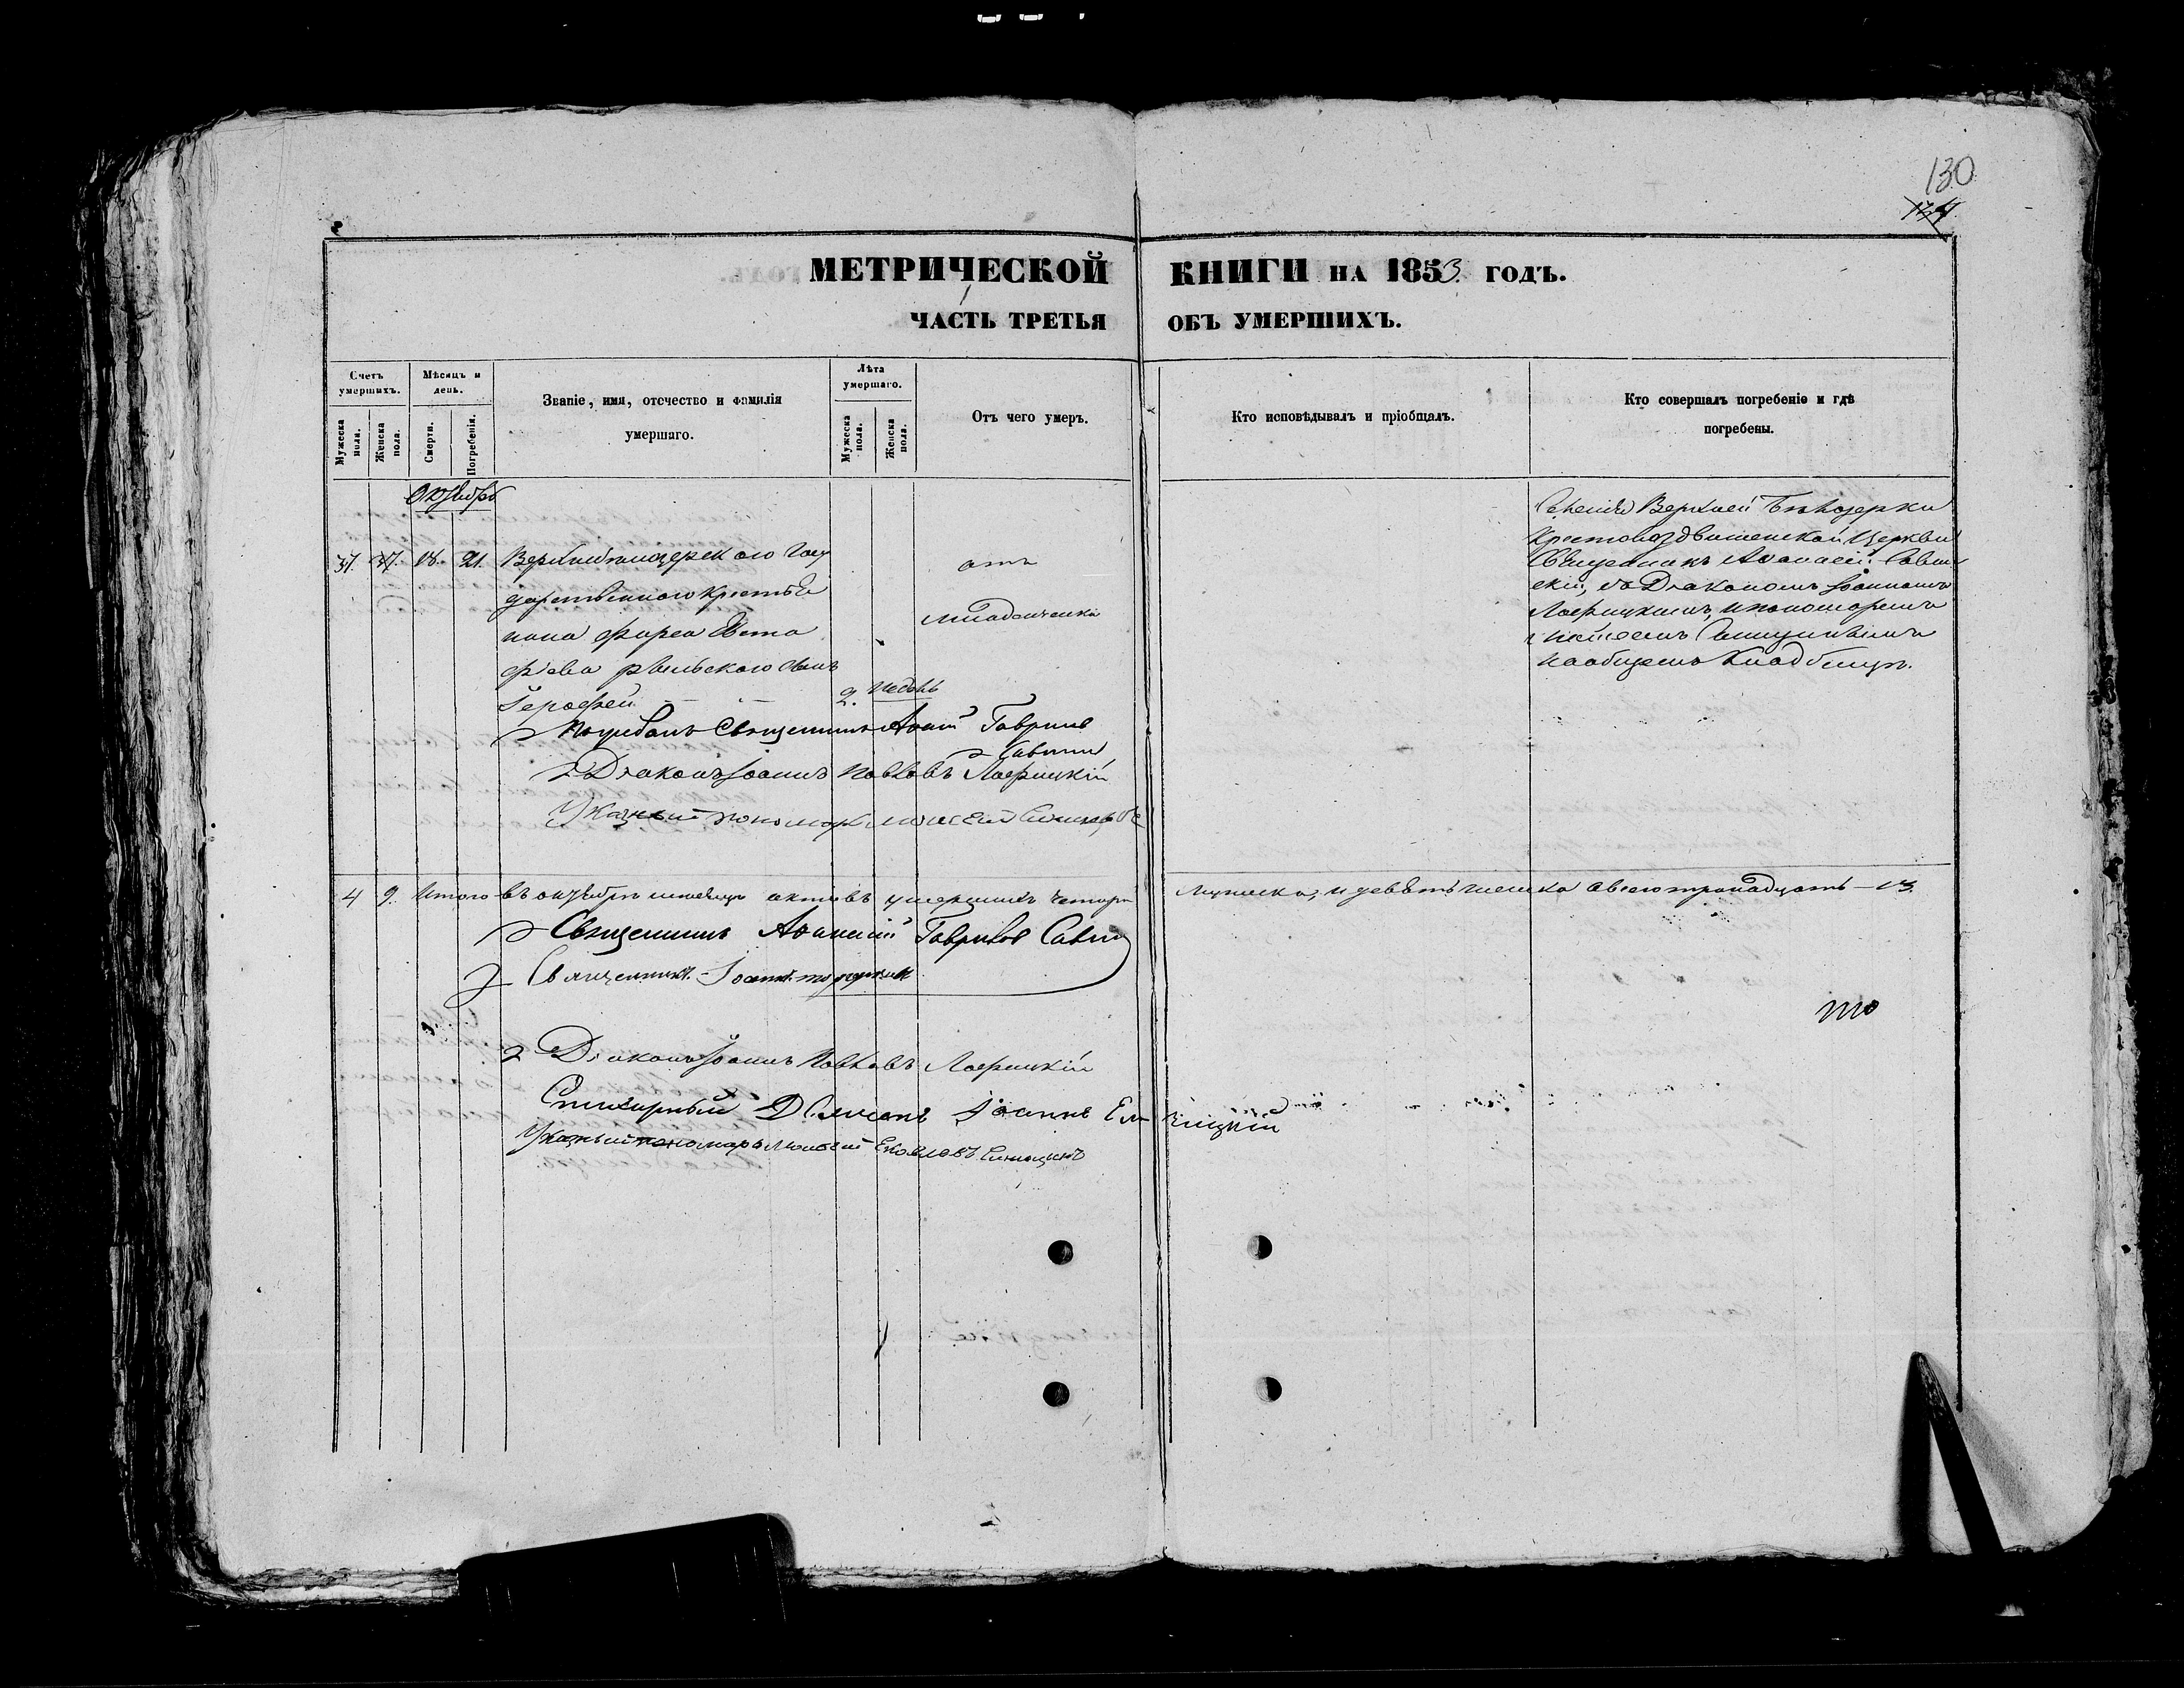 130
134
МЕТРИЧЕСКОЙ КНИГИ НА 1853 ГОДЪ.
ЧАСТЬ ТРЕТЬЯ ОБЪ УМЕРШИХЪ.
Счетъ умершихъ.
Мужеска пола.
Женска пола.
Мѣсяцъ и день.
Смерти.
Погребенія.
Званіе, имя, отечество и фамилія умершаго.
Лѣта умершаго.
Мужеска пола.
Женска пола.
Отъ чего умеръ.
Кто исповѣдывалъ и пріобщалъ.
Кто совершалъ погребеніе и гдѣ погребены.
Октябрь
37. 18. 21. Госу
дарственнаго крестья
нина
сынъ
Іерофей 2. недѣль
отъ
младенческа
Селенія Верхней Бѣлозерки
Крестовоздвиженской Церкви
Священникъ Аѳанасій Савин
скій, съ Діакономъ Іоанномъ
Лофицкимъ, и пономаремъ
на общемъ кладбищѣ.
Погребалъ Священникъ Аѳанасій Гавриловъ
Діаконъ Іоаннъ Павловъ Лофицкій
Указный пономарь Моисей Синицынъ
4 9. Итого въ октябрѣ мѣсяцѣ актовъ умершихъ четыре мужеска, и девять женска а всего тринадцать — 13.
Священникъ Аѳанасій Гавриловъ Савин
Священникъ Іоаннъ
Діаконъ Іоаннъ Павловъ Лофицкій
Стихарный Дьячокъ Іоаннъ
Указный пономарь Моисей Яковлевъ Синицынъ
то